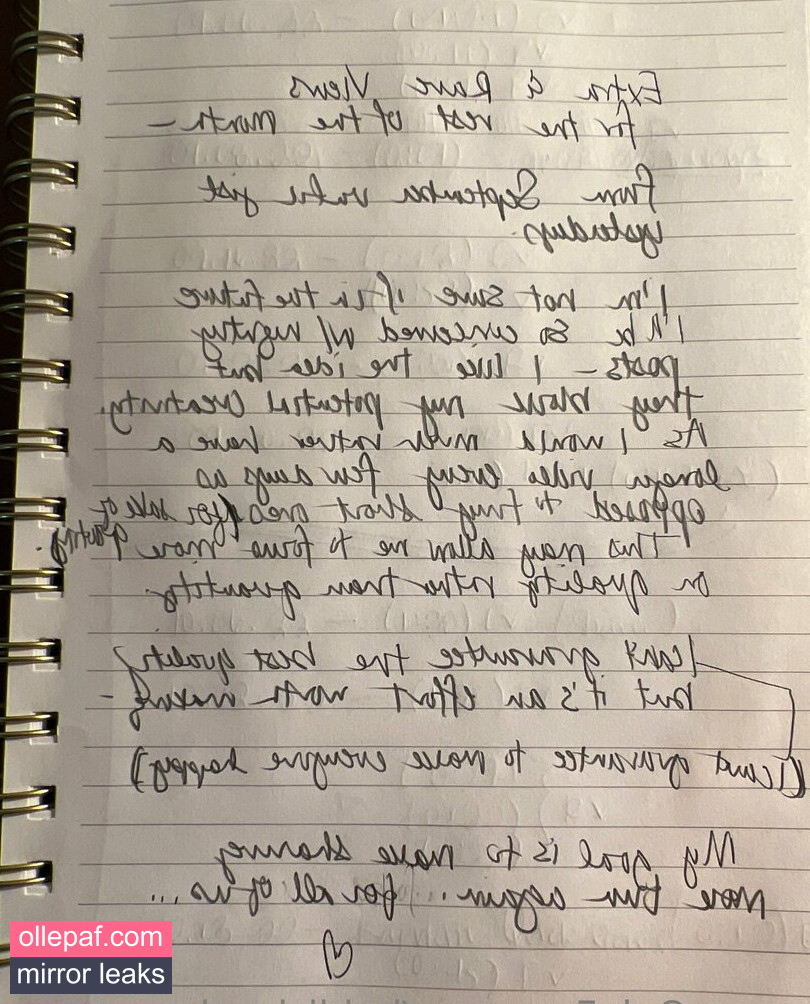 Extra & Rare Views
for the rest of the month –
from September while just
yesterdays.
I'm not sure if in the future
I'll be so concerned w/ nightly
posts – I like the idea but
they block my potential creativity.
As I would much rather have a
longer video every few days as
opposed to tiny short ones (for sake of
This may allow me to focus more
on quality rather than quantity.
I can't guarantee the best quality
but it's an effort worth making –
(I cant guarantee to make everyone happy)
My goal is to make sharing
more fun again... for all of us ...
ollepaf.com
mirror leaks